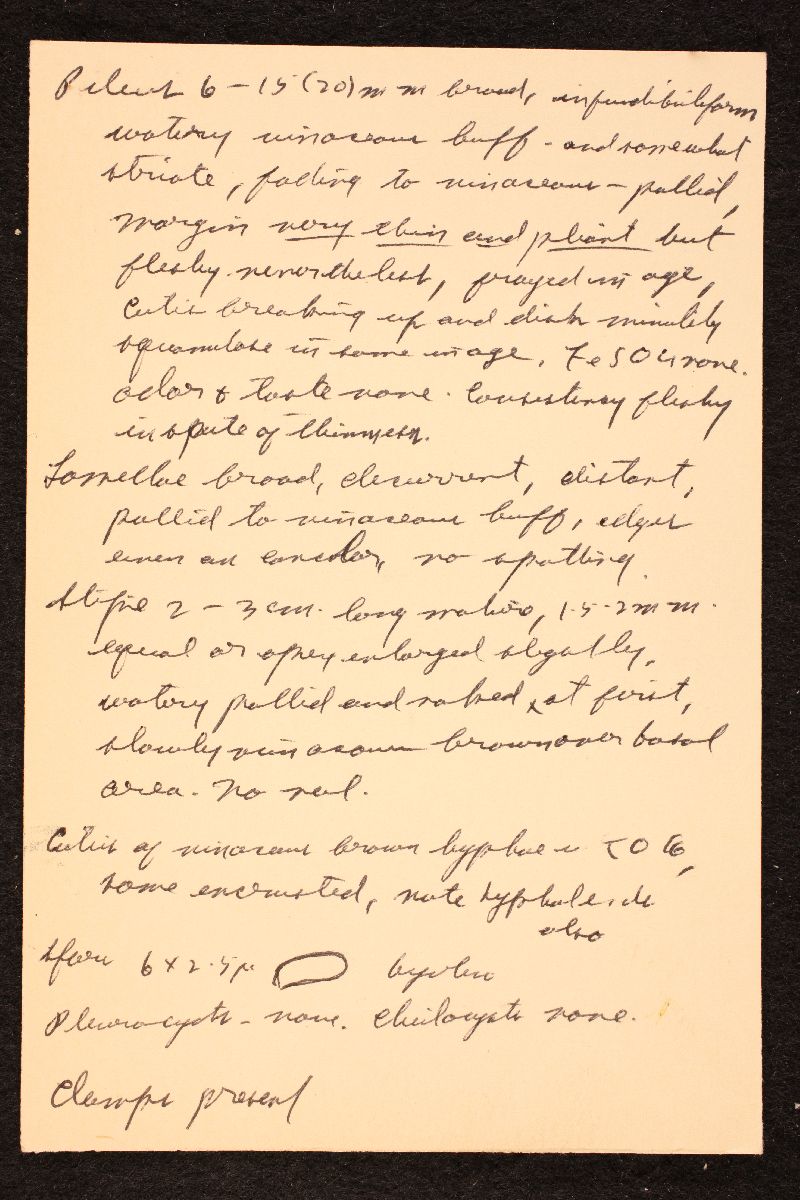 Pileus 6 - 15 (20) mm broad, infundibuliform
watery vinaceous buff - and somewhat
striate, fading to vinaceous - pallid,
margin very thin and pliant but
fleshy nevertheless, frayed in age,
cutis breaking up and disk minutely
squamulose in some in age. FeSO4 none.
odor & taste none. Consistency fleshy
in spite of thinness.
Lamellae broad, decurrent, distant,
pallid to vinaceous buff, edges
even an concolor, no spotting.
Stipe 2 - 3 cm. long 1.5-2mm.
equal or apex enlarged slightly,
watery pallid and naked at first,
slowly vinaceous brown over basal
area. No veil.
Cutis of vinaceous brown hyphae in KOH,
some encrusted, note hyphal ends
also
Spores 6 x 2.5µ hyaline
Pleurocysts - none. Cheilocysts none.
Clamps present